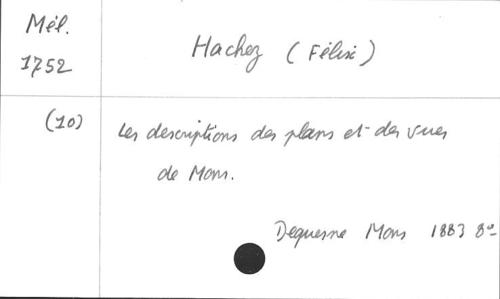 Mél.
1752
Hachez (Félix)
(10)
Les descriptions des plans et des vues
de Mons.
Dequesne Mons 1883 8°